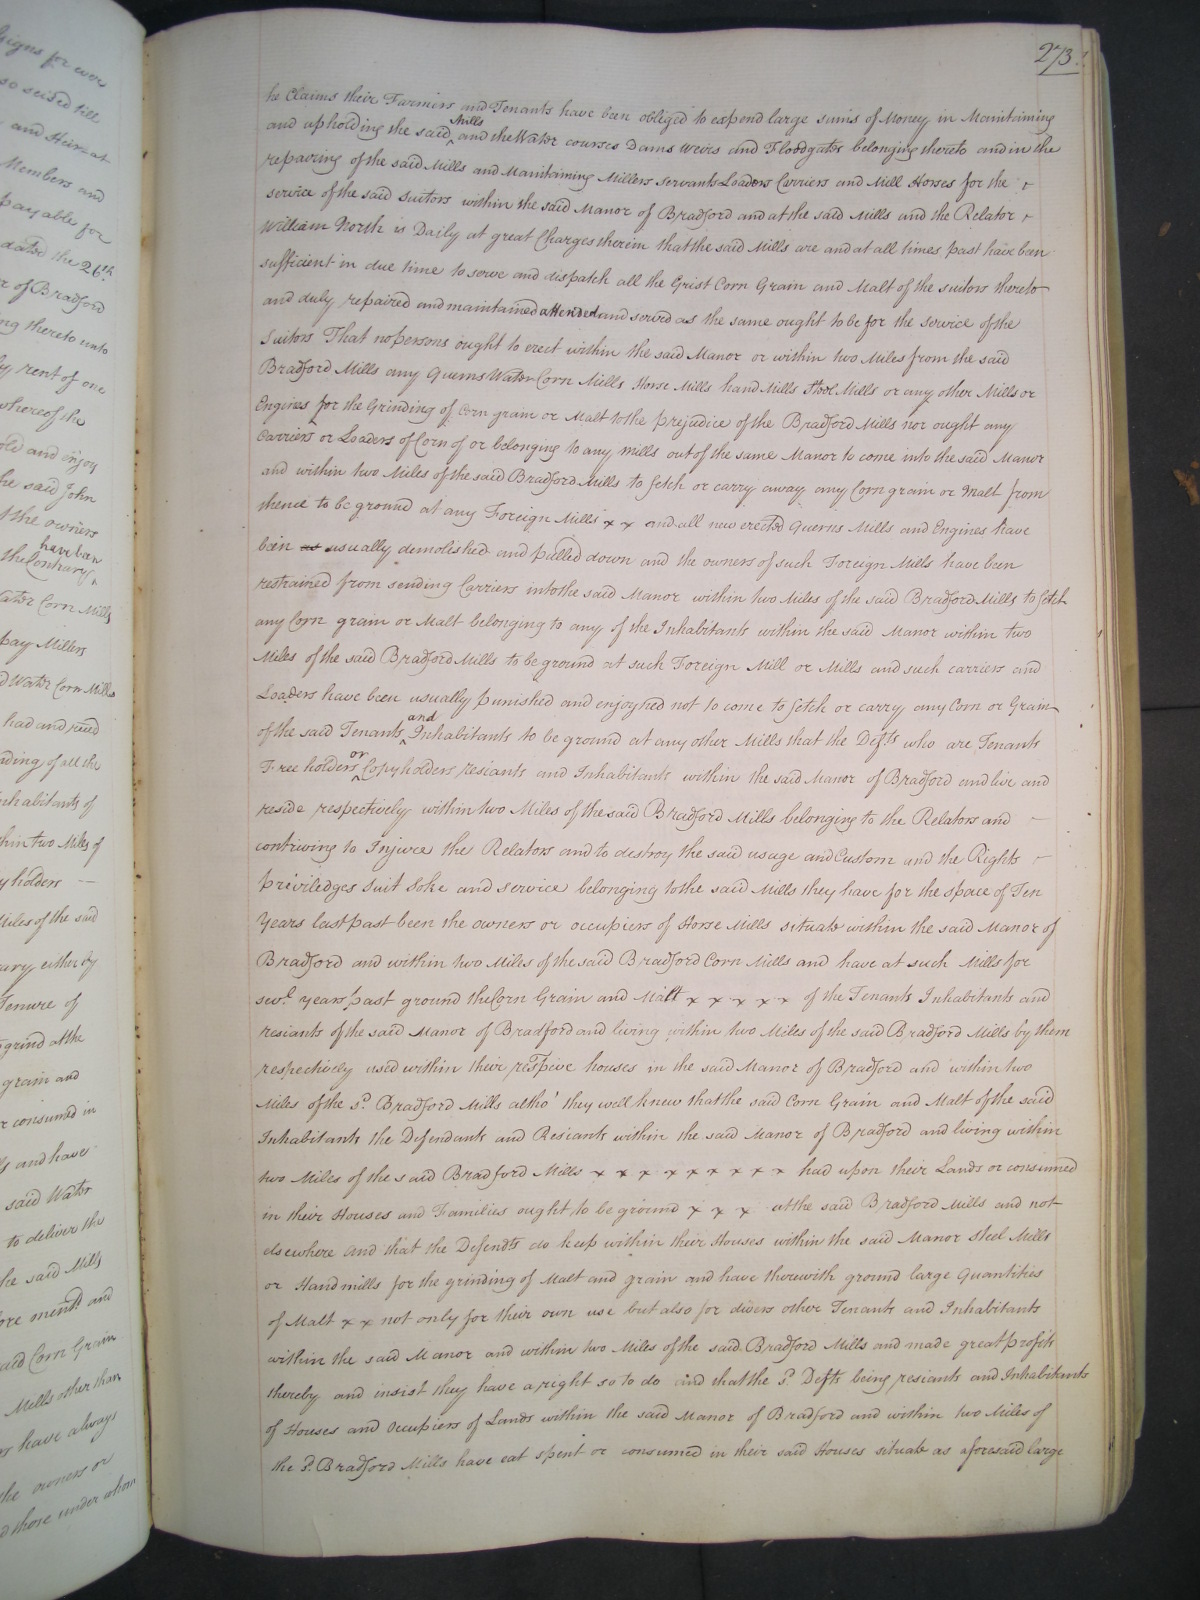 273
he Claims their Farmers and Tenants have been obliged to expend large sums of Money in Maintaining
and upholding the said Mills and the Water courses Dams Weirs and Floodgates belonging thereto and in the
repairing of the said Mills and Maintaining Millers Servants Loaders Carriers and Mill Horses for the
service of the said Suitors within the said Manor of Bradford and at the said Mills and the Relator
William North is Daily at great Charges therein that the said Mills are and at all times past have been
sufficient in due time to serve and dispatch all the Grist Corn Grain and Malt of the suitors thereto
and duly repaired and maintained attended and served as the same ought to be for the service of the
Suitors That no persons ought to erect within the said Manor or within two Miles from the said
Bradford Mills any Querns Water Corn Mills Horse Mills hand Mills Steel Mills or any other Mills or
Engines for the Grinding of Corn grain or Malt to the prejudice of the Bradford Mills nor ought any
Carriers or Loaders of Corn of or belonging to any mills out of the same Manor to come into the said Manor
and within two Miles of the said Bradford Mills to fetch or carry away any Corn grain or Malt from
thence to be ground at any Foreign Mills x x and all new erected Querns Mills and Engines have
been as usually demolished and pulled down and the owners of such Foreign Mills have been
restrained from sending Carriers into the said Manor within two Miles of the said Bradford Mills to fetch
any Corn grain or Malt belonging to any of the Inhabitants within the said Manor within two
Miles of the said Bradford Mills to be ground at such Foreign Mill or Mills and such carriers and
Loaders have been usually punished and enjoyned not to come to fetch or carry any Corn or Grain
of the said Tenants and Inhabitants to be ground at any other Mills that the Defts who are Tenants
Free holders or Copyholders resiants and Inhabitants within the said Manor of Bradford and live and
reside respectively within two Miles of the said Bradford Mills belonging to the Relators and
contriving to Injure the Relators and to destroy the said usage and Custom and the Rights
priviledges Suit Soke and service belonging to the said Mills they have for the space of Ten
Years last past been the owners or occupiers of Horse Mills situate within the said Manor of
Bradford and within two Miles of the said Bradford Corn Mills and have at such Mills for
sevl years past ground the Corn Grain and Malt x x x x x of the Tenants Inhabitants and
resiants of the said Manor of Bradford and living within two Miles of the said Bradford Mills by them
respectively used within their respive houses in the said Manor of Bradford and within two
Miles of the sd Bradford Mills altho' they well knew that the said Corn Grain and Malt of the said
Inhabitants the Defendants and Resiants within the said Manor of Bradford and living within
two Miles of the said Bradford Mills x x x x x x x x x had upon their Lands or consumed
in their Houses and Families ought to be ground x x x at the said Bradford Mills and not
elsewhere and that the Defendts do keep within their Houses within the said Manor Steel Mills
or Handmills for the grinding of Malt and grain and have therewith ground large Quantities
of Malt x x not only for their own use but also for divers other Tenants and Inhabitants
within the said Manor and within two Miles of the said Bradford Mills and made great profits
thereby and insist they have a right so to do and that the sd Defts being resiants and Inhabitants
of Houses and Occupiers of Lands within the said Manor of Bradford and within two Miles of
the sd Bradford Mills have eat spent or consumed in their said Houses situate as aforesaid large